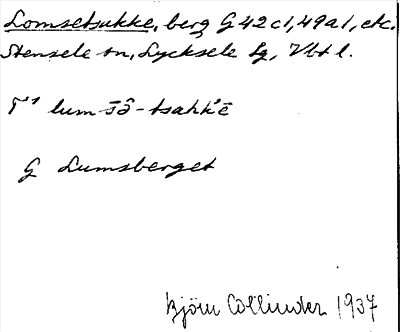 Lomsetsukke, berg G 42 c1, 49 a1, etc.
Stensele sn, Lycksele lg, Vbt l.
lum-sō̂-tsahk'ē
G Lumsberget
Björn Collinder 1937